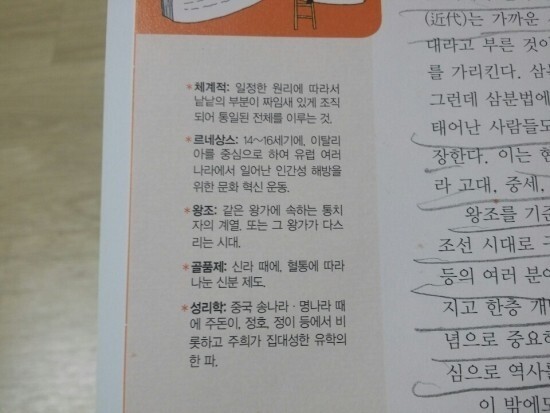 *체계적: 일정한 원리에 따라서
낱낱의 부분이 짜임새 있게 조직
되어 통일된 전체를 이루는 것.
*르네상스: 14~16세기에, 이탈리
아를 중심으로 하여 유럽 여러
나라에서 일어난 인간성 해방을
위한 문화 혁신 운동.
*왕조: 같은 왕가에 속하는 통치
자의 계열. 또는 그 왕가가 다스
리는 시대.
*골품제: 신라 때에, 혈통에 따라
나눈 신분 제도.
*성리학: 중국 송나라·명나라 때
에 주돈이, 정호, 정이 등에서 비
롯하고 주희가 집대성한 유학의
한 파.
(近代)는 가까운
대라고 부른 것이
를 가리킨다. 삼분
그런데 삼분법에
태어난 사람들도
장한다. 이는 현
라 고대, 중세,
왕조를 기준
조선 시대로 구
등의 여러 분야
지고 한층 개
념으로 중요한
심으로 역사를
이 밖에도